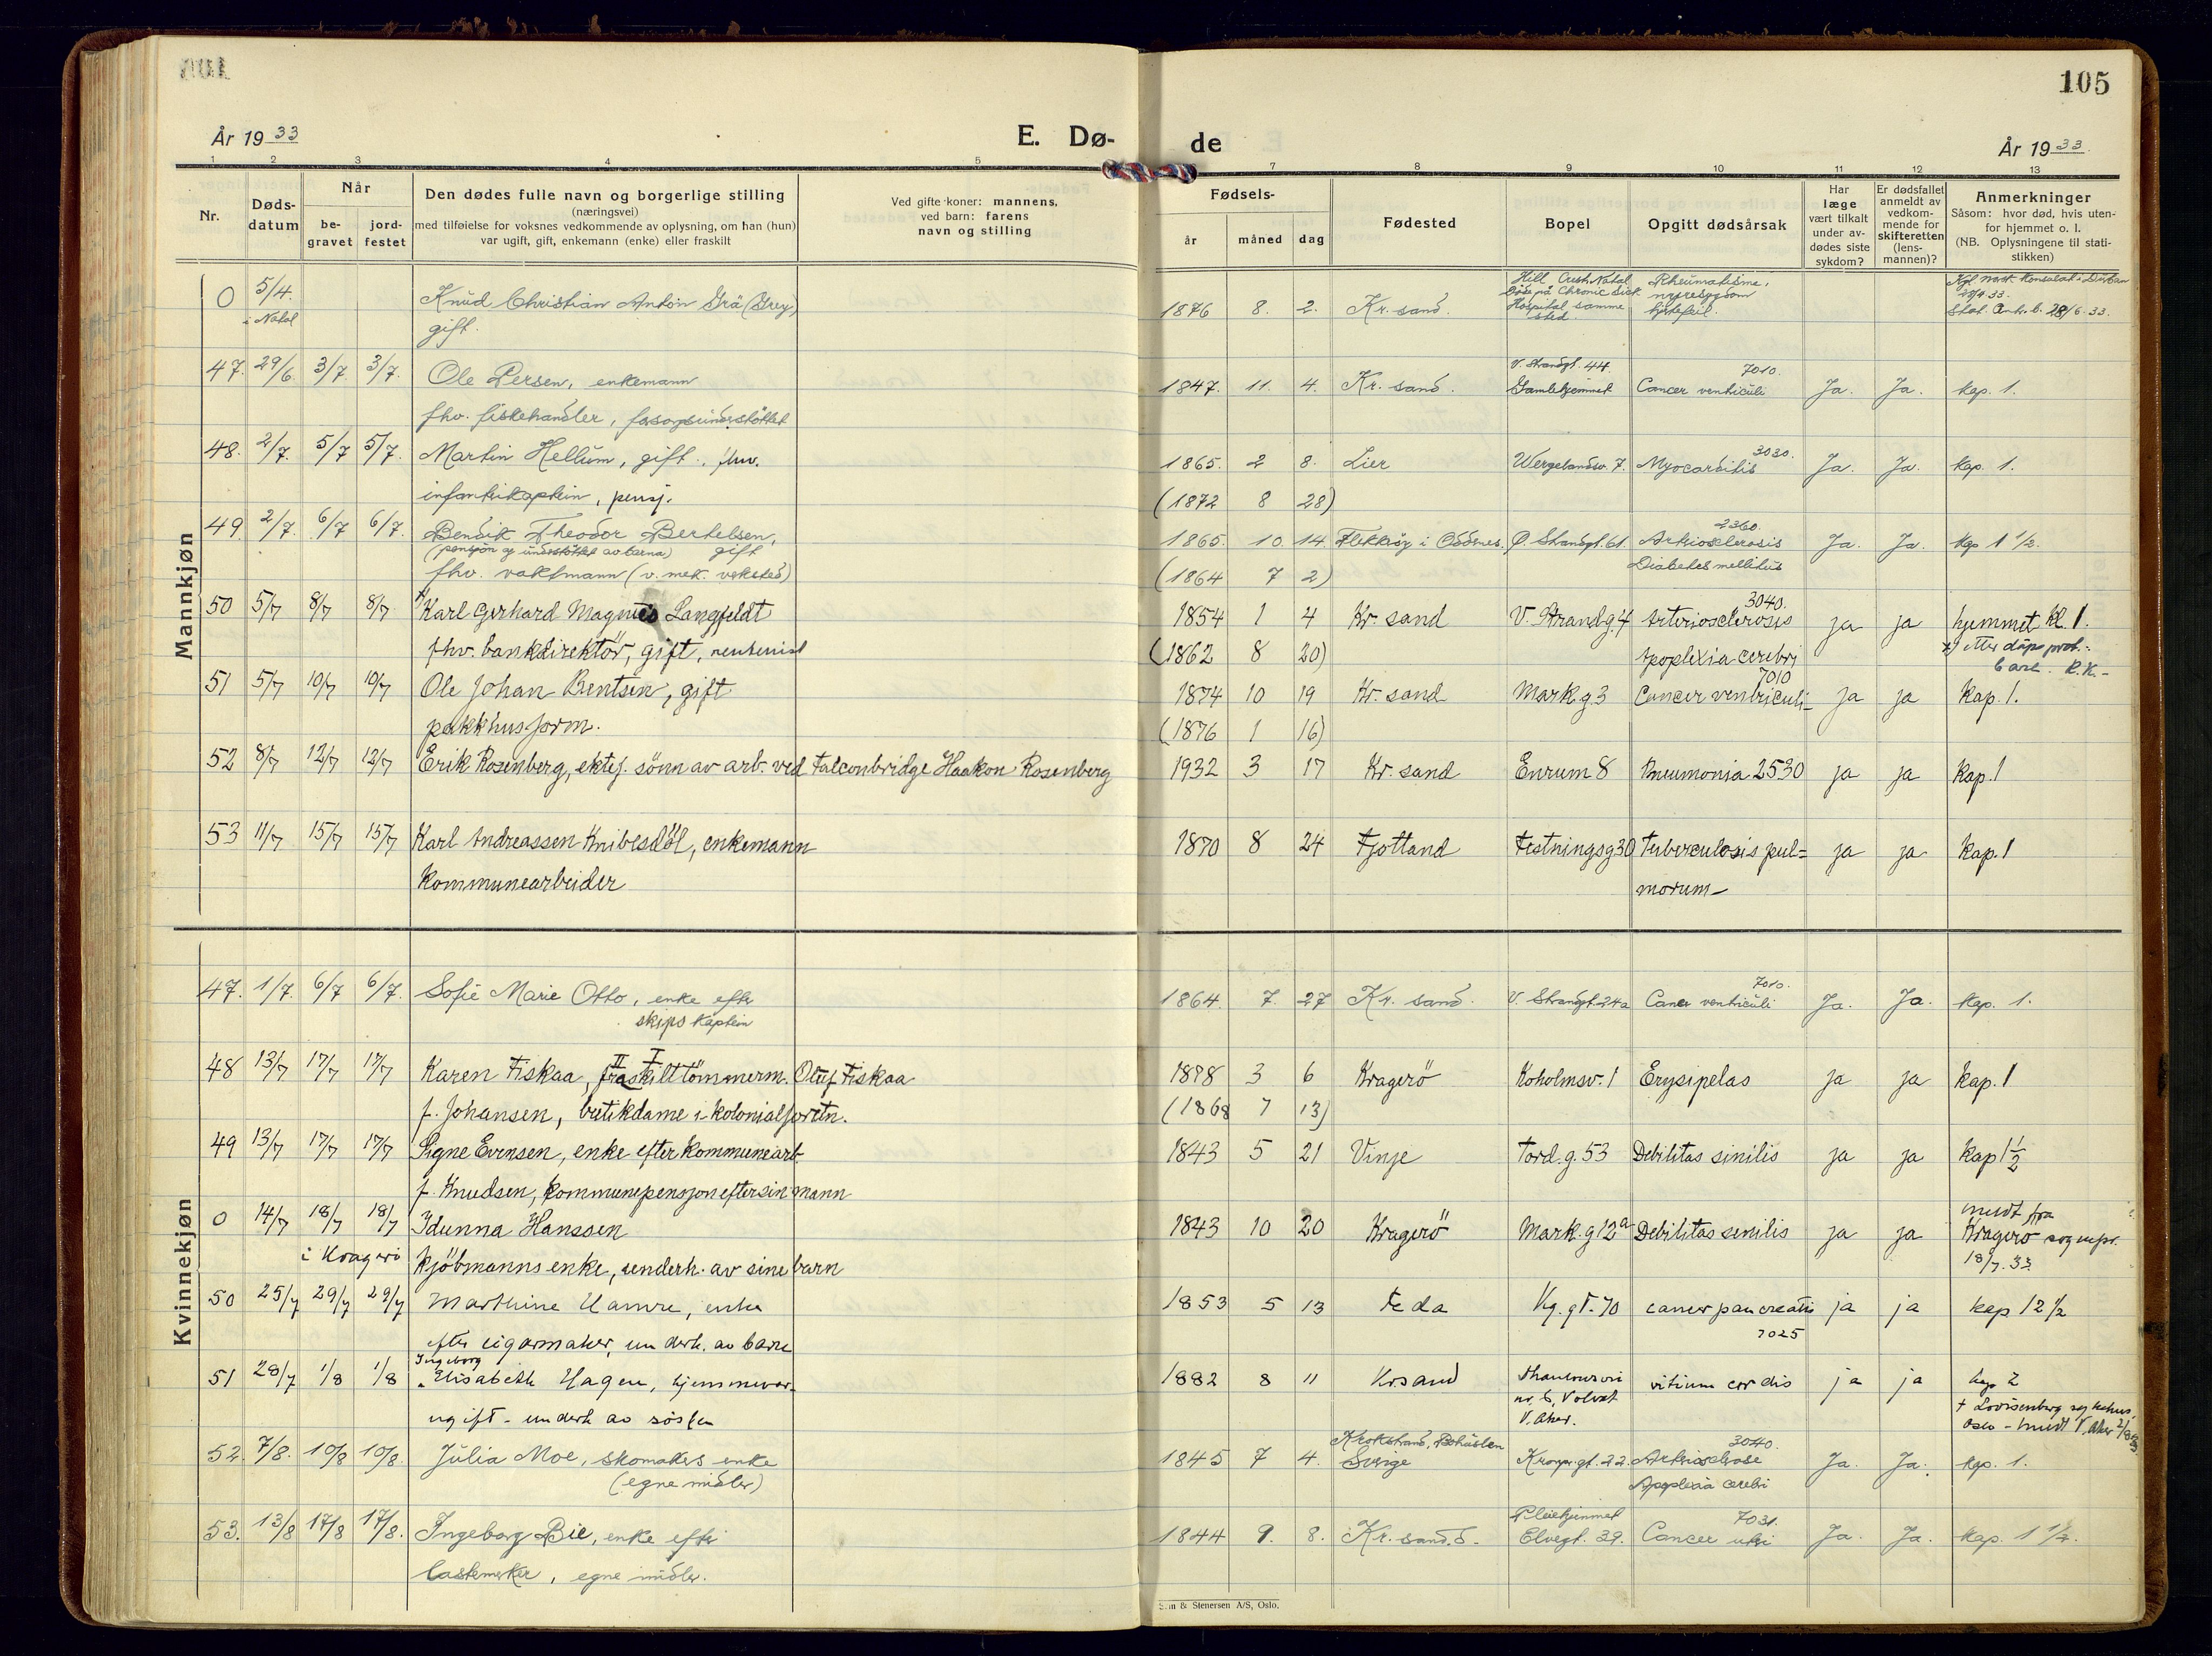 105
År 19 33
E. Dø-
de
År 19 33
1 2 3 4 5 7 8 9 10 11 12 13
Nr.
Døds-
datum
Når
be-
gravet
jord-
festet
Den dødes fulle navn og borgerlige stilling
(næringsvei)
med tilføielse for voksnes vedkommende av oplysning, om han (hun)
var ugift, gift, enkemann (enke) eller fraskilt
Ved gifte koner: mannens,
ved barn: farens
navn og stilling
Fødsels-
år måned dag
Fødested
Bopel
Opgitt dødsårsak
Har
læge
vært tilkalt
under av-
dødes siste
sykdom?
Er dødsfallet
anmeldt av
vedkom-
mende for
skifteretten
(lens-
mannen)?
Anmerkninger
Såsom: hvor død, hvis uten-
for hjemmet o. l.
(NB. Oplysningene til stati-
stikken)
Mannkjøn
0 5/4. Knud Christian Antön Grä (Grey) 1876 8. 2. Kr. sand. Hill Crest Natal Rheumatisme,
i Natal gift. Døde på Chronic Sick Hospital samme sted nyresygdom hjertefeil. Kgl. norsk Konsulat i Durban 28/6. 33.
47. 29/6 3/7. 3/7. Ole Persen, enkemann 1847. 11. 4. Kr. sand. V. Strandgt. 44. Gamlehjemmet Cancer ventriculi 7010. Ja. Ja. kap. 1.
fhv. fiskehandler, forsorgsunderstöttet
48. 2/7. 5/7 5/7. Martin Hellum, gift, fhv. 1865. 2 8. Lier Wergelandsv. 7. Myocarditis 3030. Ja. Ja. kap. 1.
infanterikaptein, pensj. (1872 8 28)
49. 2/7. 6/7 6/7. Bendik Theodor Bertelsen, 1865. 10. 14. Flekkrøy i Oddernes. Ø. Strandgt. 61. Arteriosclerosis 2360. Ja. Ja. kap 1 1/2.
(pensjon og understöttet av barna) gift Diabetes mellitus
fhv. vaktmann (v. mek. veksted) (1864 7 2)
50 5/7 8/7 8/7 Karl Gerhard Magnus Langfeldt 1854 1 4 Kr. sand V. Strandg. 4 Arteriosclerosis 3040. ja ja hjemmet kl. 1.
fhv. bankdirektör, gift, rentenist (1862 8 20) Apoplexia cerebri x) etter dåpsprot.: Carl. R.K.-
51 5/7 10/7 10/7 Ole Johan Bentsen, gift 1874 10 19 Kr. sand Mark.g 3 Cancer ventriculi 7010 ja ja kap. 1.
pakkhusform. (1876 1 16)
52 8/7 12/7 12/7 Erik Rosenberg, ektef. sönn av arb. ved Falconbridge Haakon Rosenberg 1932 3 17 Kr. sand Enrum 8 Pneumonia 2530 ja ja kap. 1
53 11/7 15/7 15/7 Karl Andreassen Knibesdøl, enkemann 1870 8 24 Fjotland Festningsg 30 Tuberculosis pul= ja ja kap. 1
Kommunearbeider morum
Kvinnekjøn
47. 1/7. 6/7 6/7. Sofie Marie Otto, enke efter 1864. 7. 27 Kr. sand. V. Strandgt. 24a Cancer ventriculi 7010. Ja. Ja. kap. 1.
skipskaptein
48 13/7 17/7 17/7 Karen Fiskaa, fraskilt tömmerm. Oluf Fiskaa 1878 3 6 Kragerö Koholmsv. 1 Erysipelas ja ja kap. 1
II I
f. Johansen, butikdame i kolonialforretn. (1868 7 13)
49 13/7 17/7 17/7 Signe Evensen, enke efter kommunearb. 1843 5 21 Vinje Tord.g. 53 Debilitas sinilis ja ja kap 1 1/2
f. Knudsen, kommunepensjon efter sin mann
0 14/7 18/7 18/7 Idunna Hanssen 1843 10 20 Kragerö Mark.g 12a Debilitas senilis ja ja meldt fra Kragerø sognepr. 18/7. 33.
i Kragerö kjöbmanns enke, underh. av sine barn
50 25/7 29/7 29/7 Marthine Hamre, enke 1853 5 13 Feda Kg. gt. 70 cancer pancreatis 7025 ja ja kap 12 1/2
efter cigarmaker, underh. av barn
51 28/7 1/8 1/8 Ingeborg Elisabeth Hagen, hjemmevær. 1882 8 11 Krsand V. Aker. vitium cordis ja ja kap 2
ugift - underh av søsken † Lovisenberg sykehus, Oslo - meldt V. Aker
52. 7/8. 10/8 10/8. Julia Moe, skomakers enke 1845 7 4. Krokstrand, Bohuslen Sverige Kronpr.gt. 22. Arteriosclerose 3040. Ja. Ja. kap. 1.
(egne midler) Apoplexia cerebri
53. 13/8 17/8 17/8. Ingeborg Bie, enke efter 1844 9. 8. Kr. sand. S. Pleiehjemmet Elvegt. 39. Cancer uteri 7031. Ja. Ja. kap. 1 1/2.
lastemerker, egne midler.
& Stenersen A/S, Oslo.